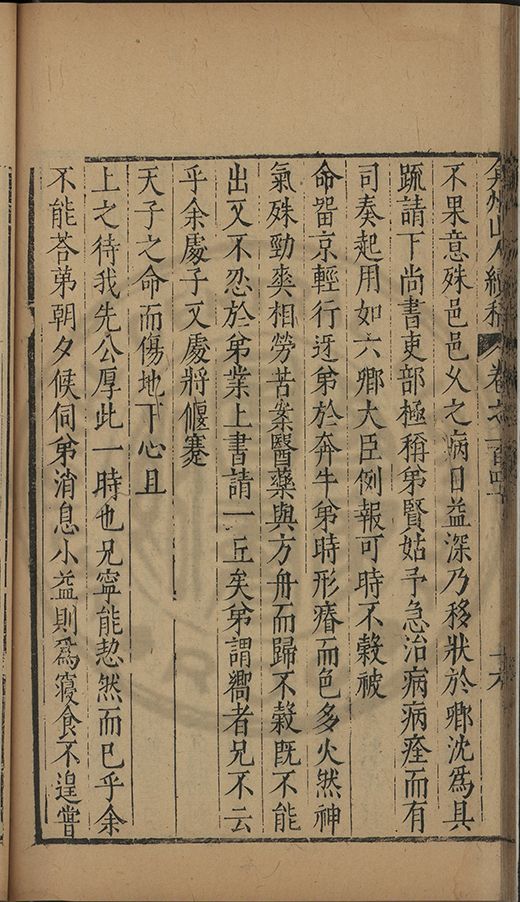 弇州山人續稿 卷之一百四十 十六
不果意殊邑邑乂之病日益深乃移狀於鄉沈爲具
疏請下尚書吏部極稱弟賢姑予急治病病痊而有
司奏起用如六卿大臣例報可時不榖被
命留京輕行迓弟於奔牛弟時形瘠而色多火然神
氣殊勁爽相勞苦案醫藥與方舟而歸不榖旣不能
出又不忍於弟業上書請一丘矣弟謂嚮者兄不云
乎余處子又處將偃蹇
天子之命而傷地下心且
上之待我先公厚此一時也兄寧能恝然而已乎余
不能荅弟朝夕候伺弟消息小益則爲寢食不遑嘗